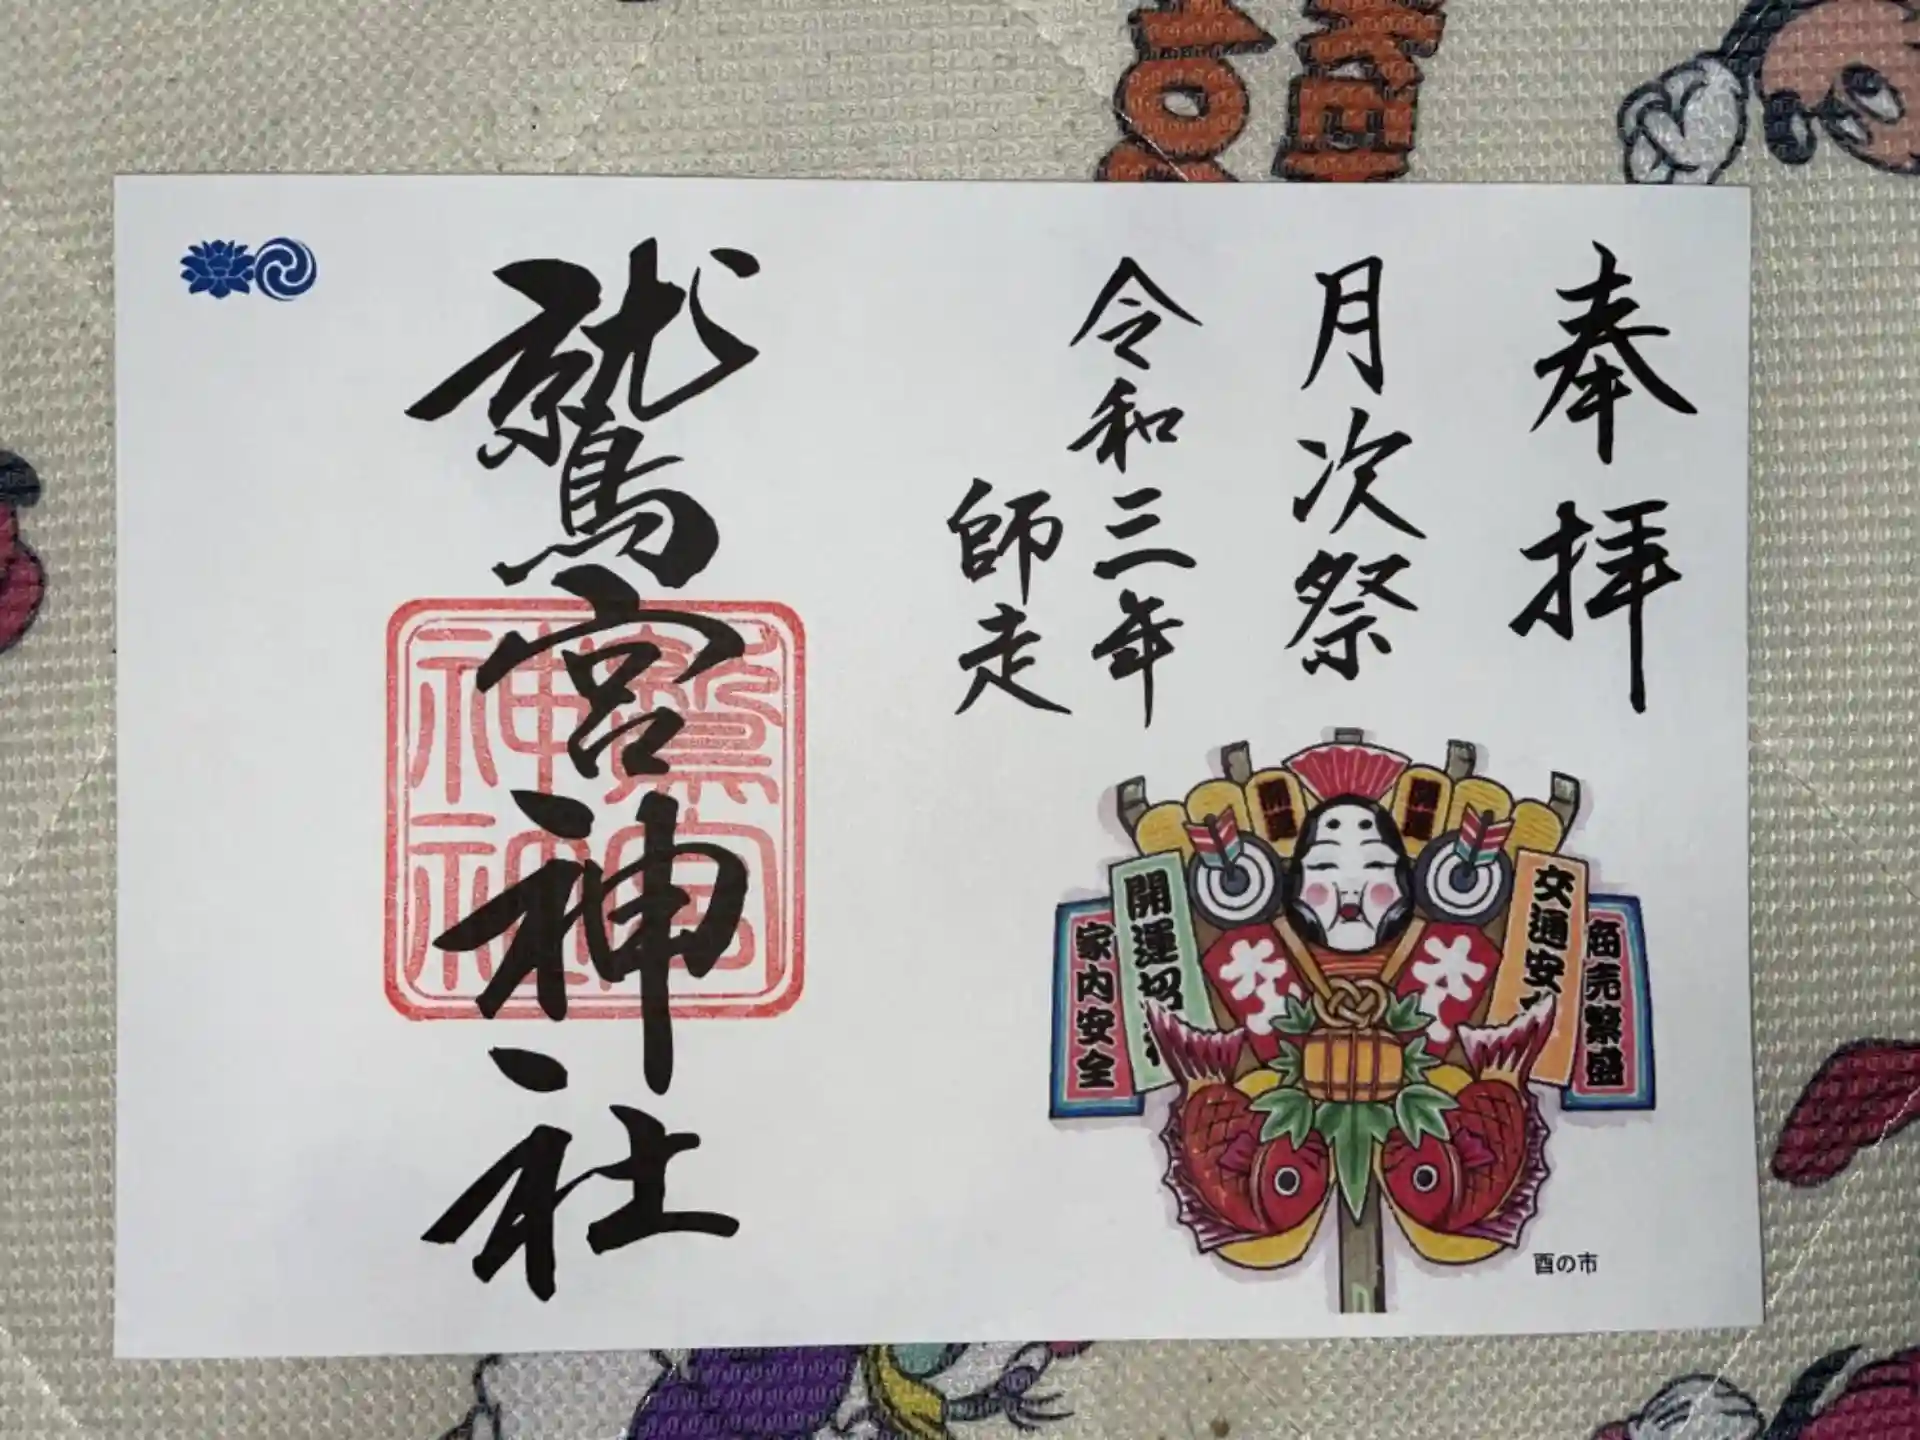 奉拝
月次祭
令和三年
師走
鷲宮神社
鷲宮神社
開運
開運
商売繁盛
交通安
開運切
家内安全
酉の市